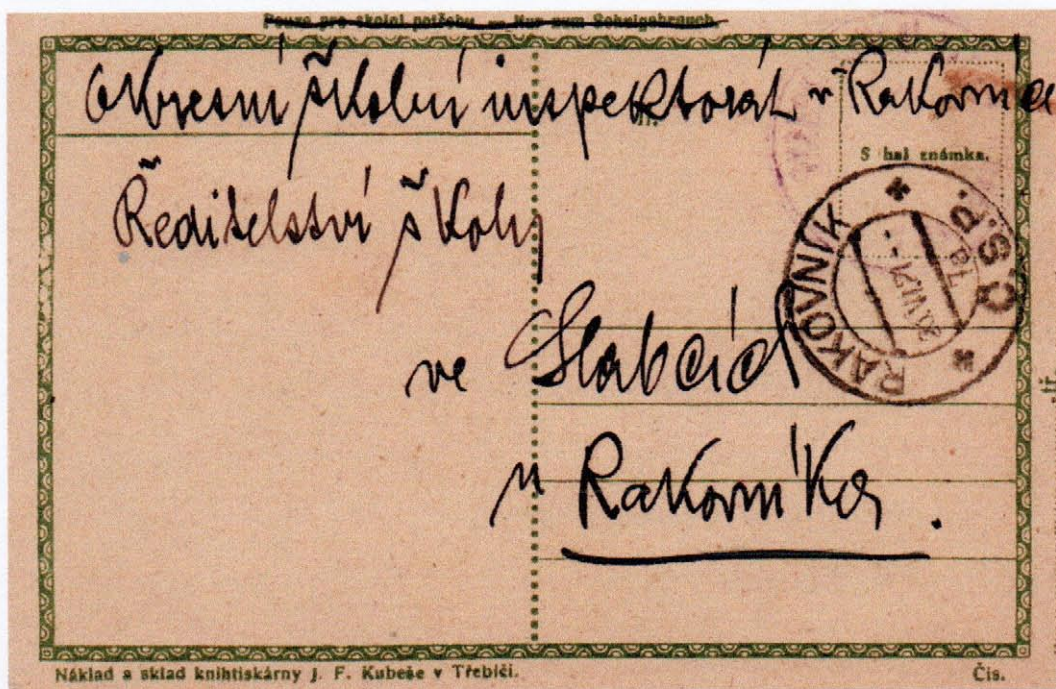 Pouze pro školní potřebu — Nur zum Schulgebrauch.
Okresní školní inspektorát v Rakovníce
5 hal známka.
Ředitelství školy
RAKOVNÍK
Č.S.P.
7a
ve Slabcích
u Rakovníka.
Náklad a sklad knihtiskárny J. F. Kubeše v Třebíči.
Čís.